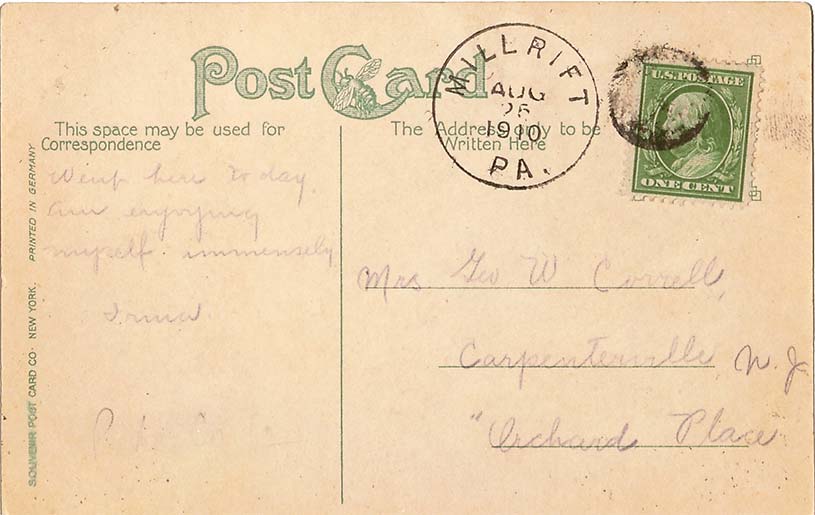 Post Card
MILLRIFT
AUG
1910
PA.
U.S. POSTAGE
ONE CENT
This space may be used for
Correspondence
The Address only to be
Written Here
here today.
am enjoying
myself immensely.
Irma.
Mrs. Geo W Correll,
Carpenterville N. J
"Orchard Place
PRINTED IN GERMANY
SOUVENIR POST CARD CO. NEW YORK.